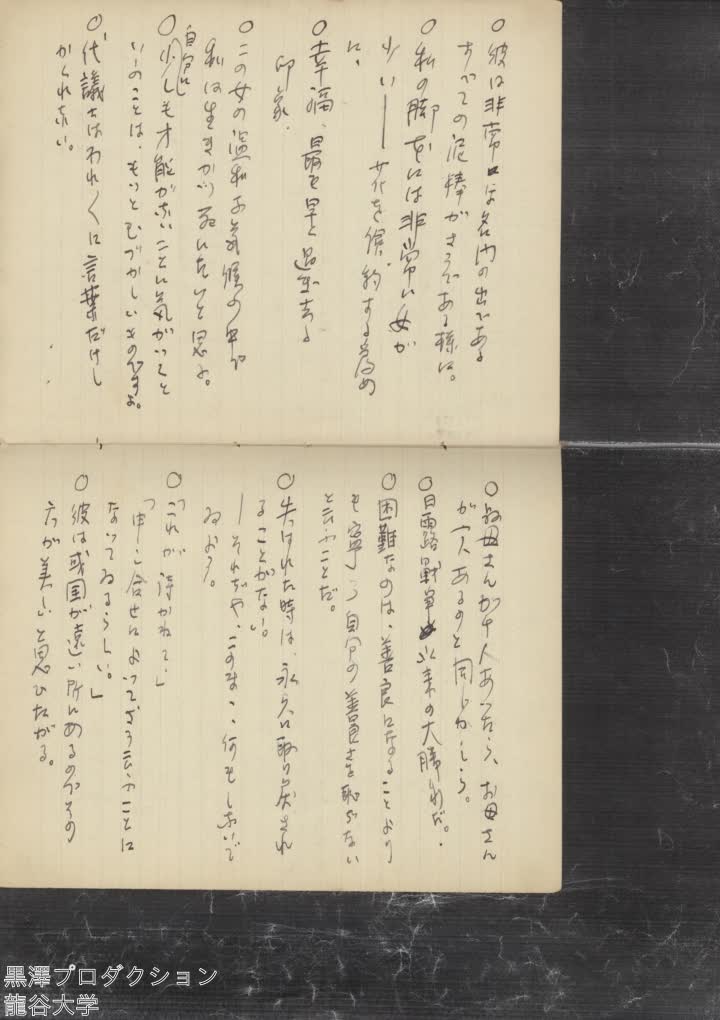 ○彼は非常に良い名門の出である
すべての泥棒がさうである様に。
○私の脚本には非常に女が
少い──花を倹約する為め
に、
○幸福、最も早く過ぎ去る
印象.
○この女の温和な気候の中で
私は生きかつ死にたいと思ふ。
○自分に少しも才能がないことに気がつくと
いふことは、もつとむづかしいものですよ。
○代議士はわれ／＼に言葉だけし
かくれない。
○お母さんが十人あつたら、お母さん
が一人あるのと同じかしら。
○日露戦争以来の大勝利だ。
○困難なのは、善良になることより
も寧ろ自分の善良さを恥ぢない
と云ふことだ。
○失はれた時は、永久に取り戻され
ることがない。
─それぢや、このまゝ、何もしないで
ゐよう。
○「これが詩かねて。」
「申し合せによつてさう云ふことに
なつてゐるらしい。」
○彼は或国が遠い所にあるのでその
方が美しいと思ひたがる。
黒澤プロダクション
龍谷大学